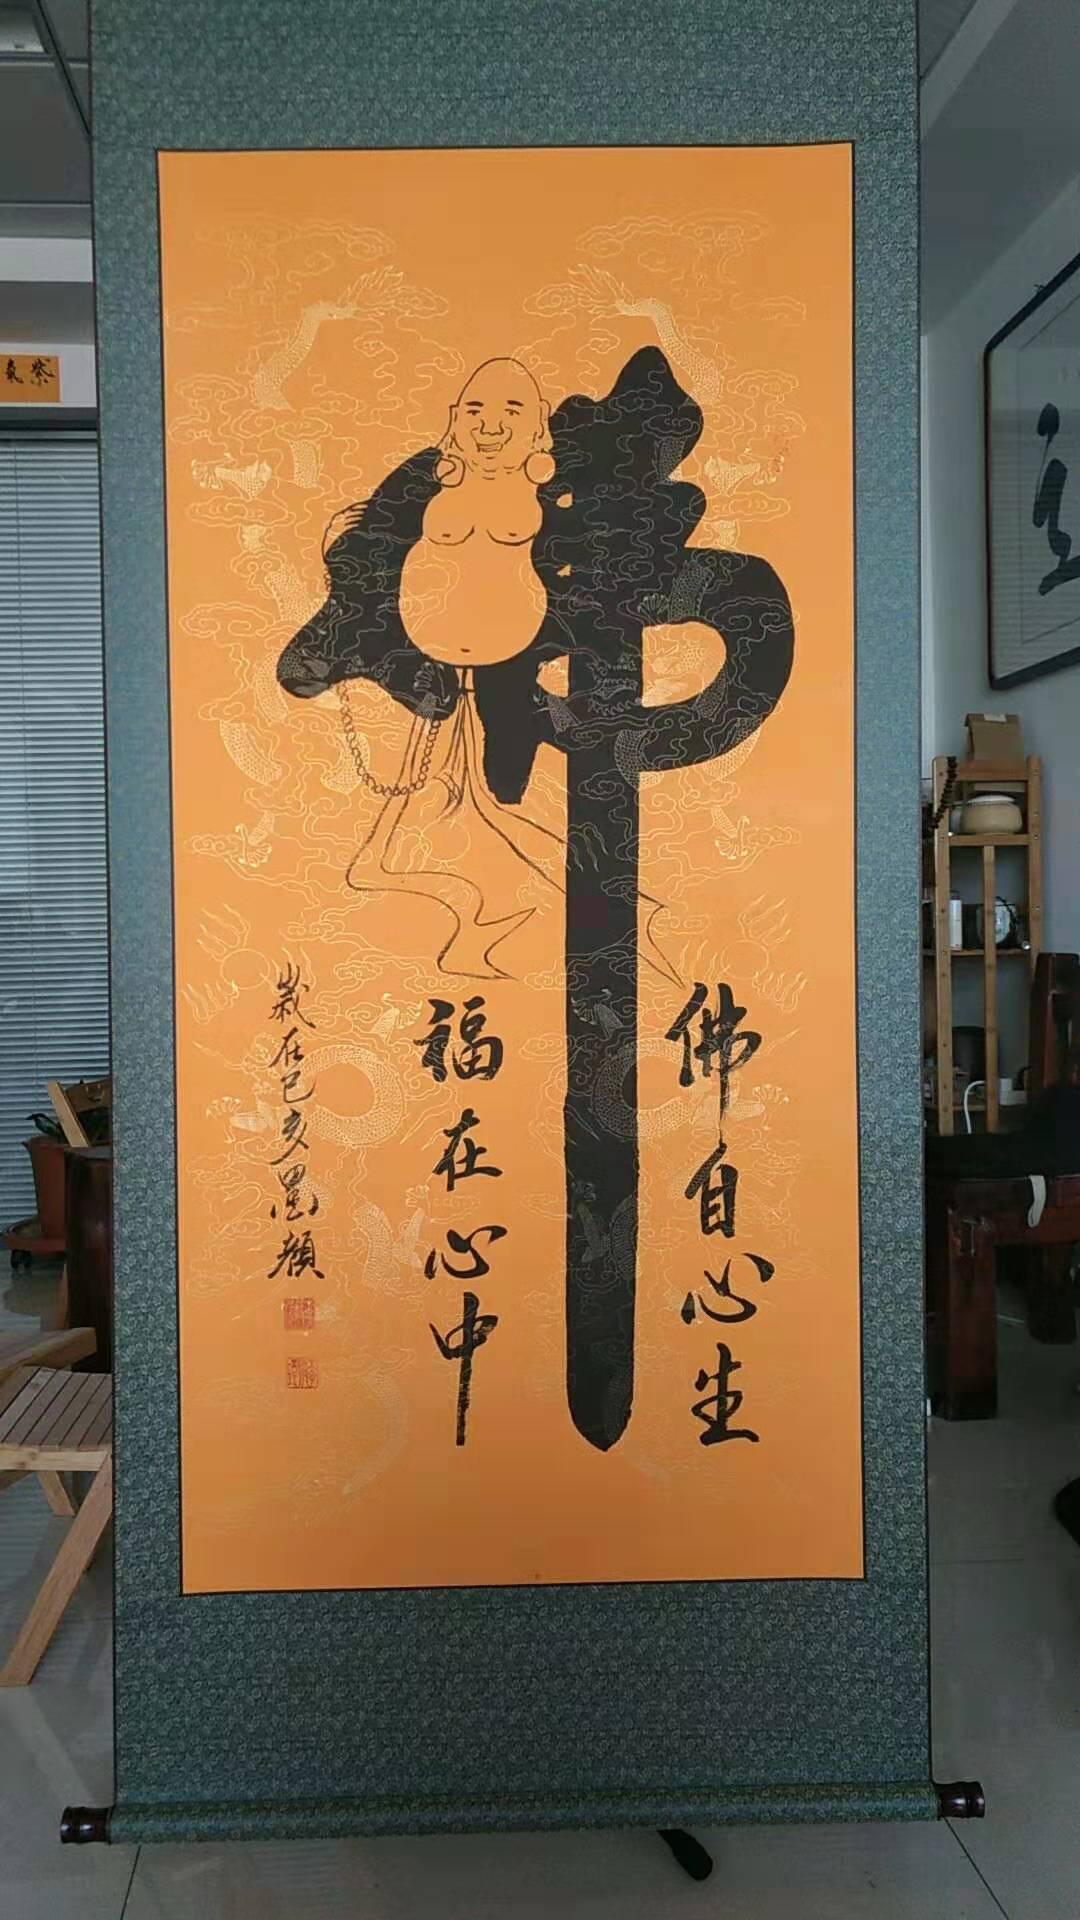 佛
佛自心生
福在心中
歲在己亥墨顏
紫氣